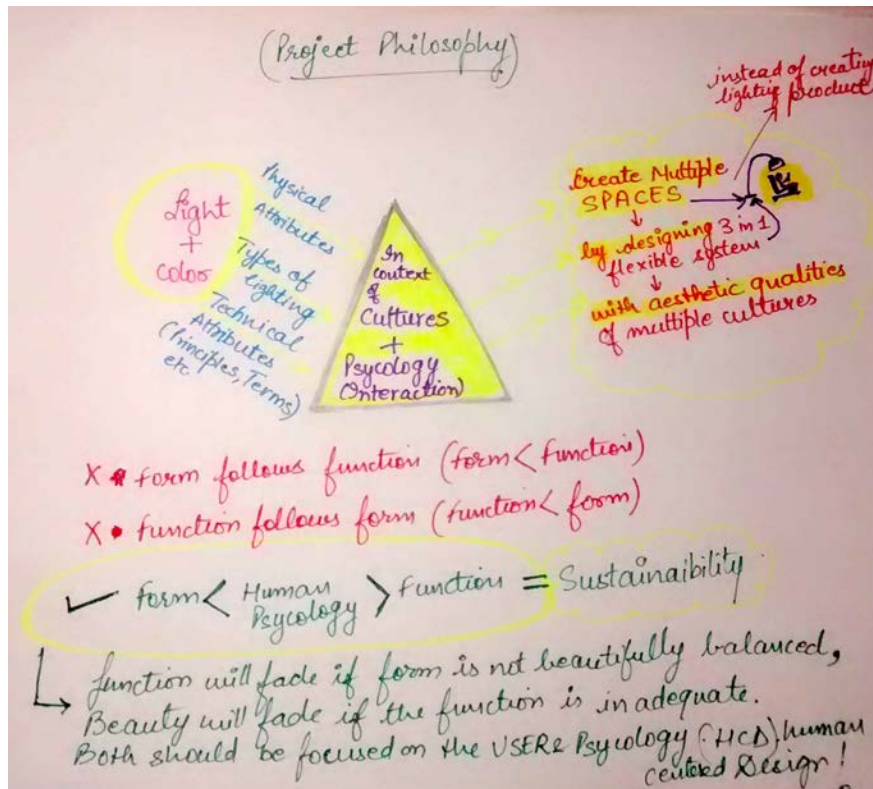 (Project Philosophy)
instead of creating
lighting product
Light
+
Color
Physical
Attributes
Types of
lighting
Technical
Attributes
(Principles, Terms)
etc
In
context
of
Cultures
+
Psycology
(Interaction)
Create Multiple
SPACES
by designing 3 in 1
flexible system
with aesthetic qualities
of multiple cultures
X • form follows function (form < function)
X • function follows form (function < form)
✓ form < Human Psycology > function = Sustainaibility
function will fade if form is not beautifully balanced,
Beauty will fade if the function is inadequate.
Both should be focused on the USER & Psycology (HCD) human
centered Design!